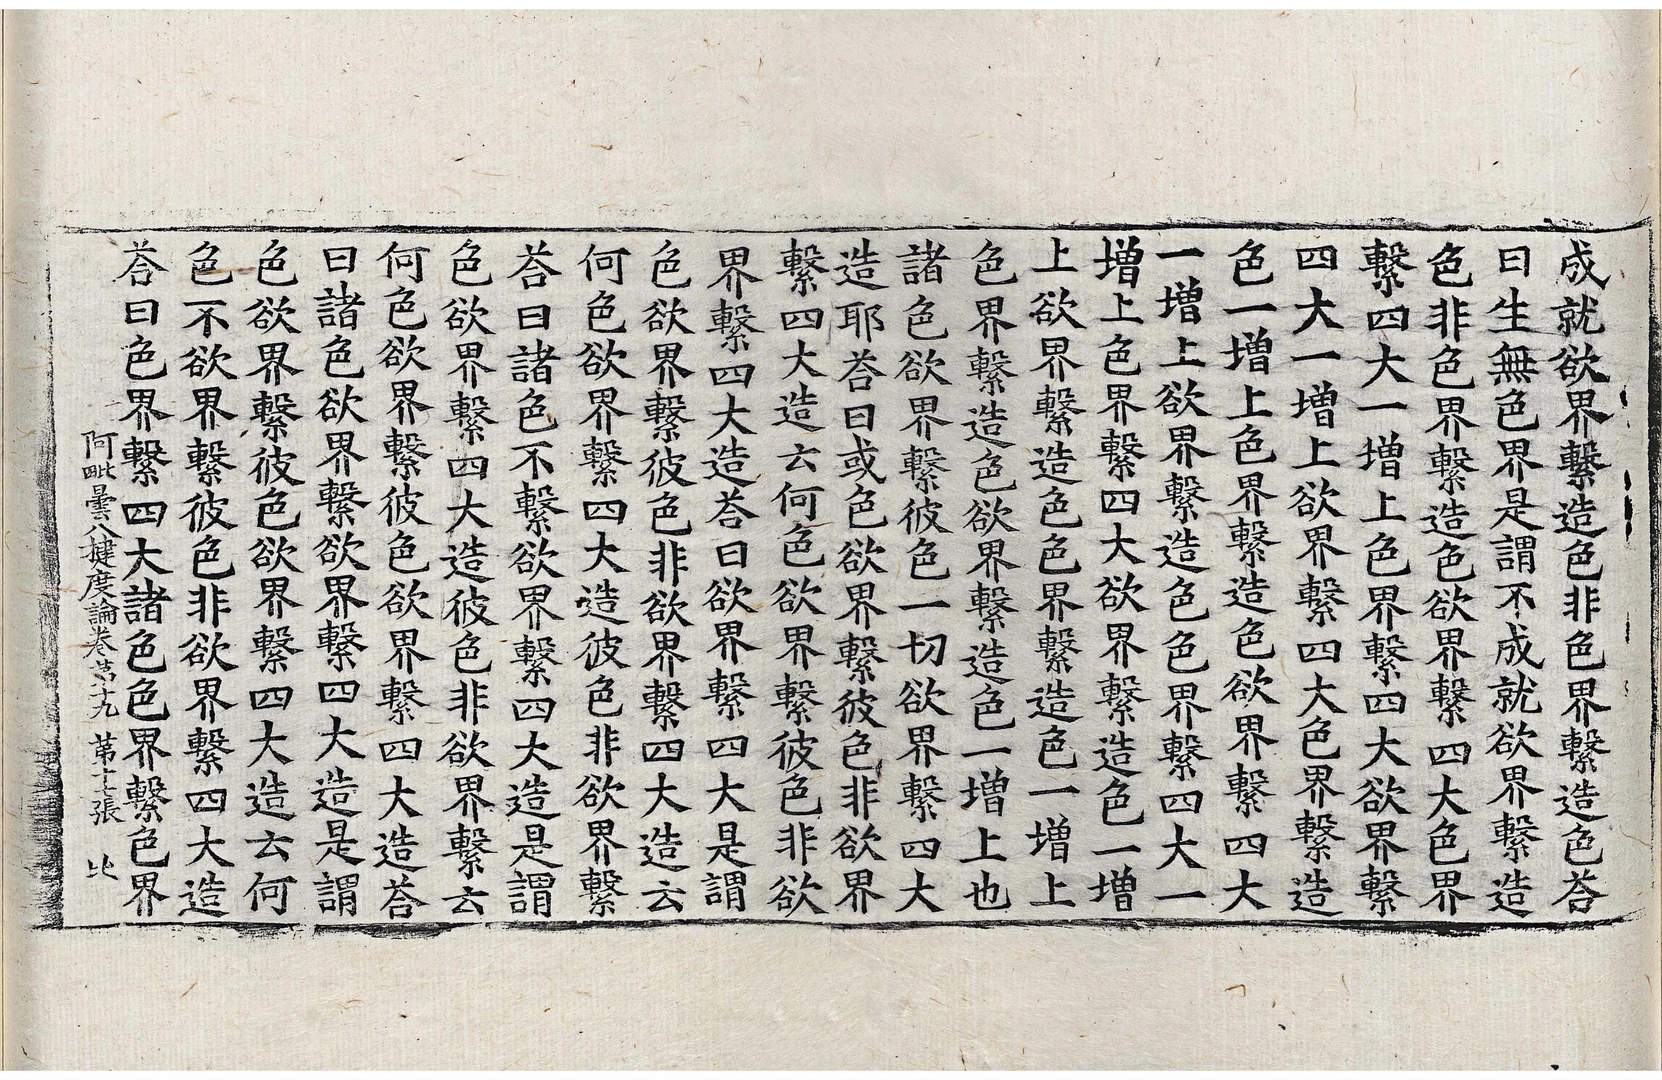 成就欲界繫造色非色界繫造色荅
曰生無色界是謂不成就欲界繫造
色非色界繫造色欲界繫四大色界
繫四大一增上色界繫四大欲界繫
四大一增上欲界繫四大色界繫造
色一增上色界繫造色欲界繫四大
一增上欲界繫造色色界繫四大一
增上色界繫四大欲界繫造色一增
上欲界繫造色色界繫造色一增上
色界繫造色欲界繫造色一增上也
諸色欲界繫彼色一切欲界繫四大
造耶荅曰或色欲界繫彼色非欲界
繫四大造云何色欲界繫彼色非欲
界繫四大造荅曰欲界繫四大是謂
色欲界繫彼色非欲界繫四大造云
何色欲界繫四大造彼色非欲界繫
荅曰諸色不繫欲界繫四大造是謂
色欲界繫四大造彼色非欲界繫云
何色欲界繫彼色欲界繫四大造荅
曰諸色欲界繫欲界繫四大造是謂
色欲界繫彼色欲界繫四大造云何
色不欲界繫彼色非欲界繫四大造
荅曰色界繫四大諸色色界繫色界
阿毗曇八揵度論卷第十九 第十七張 比